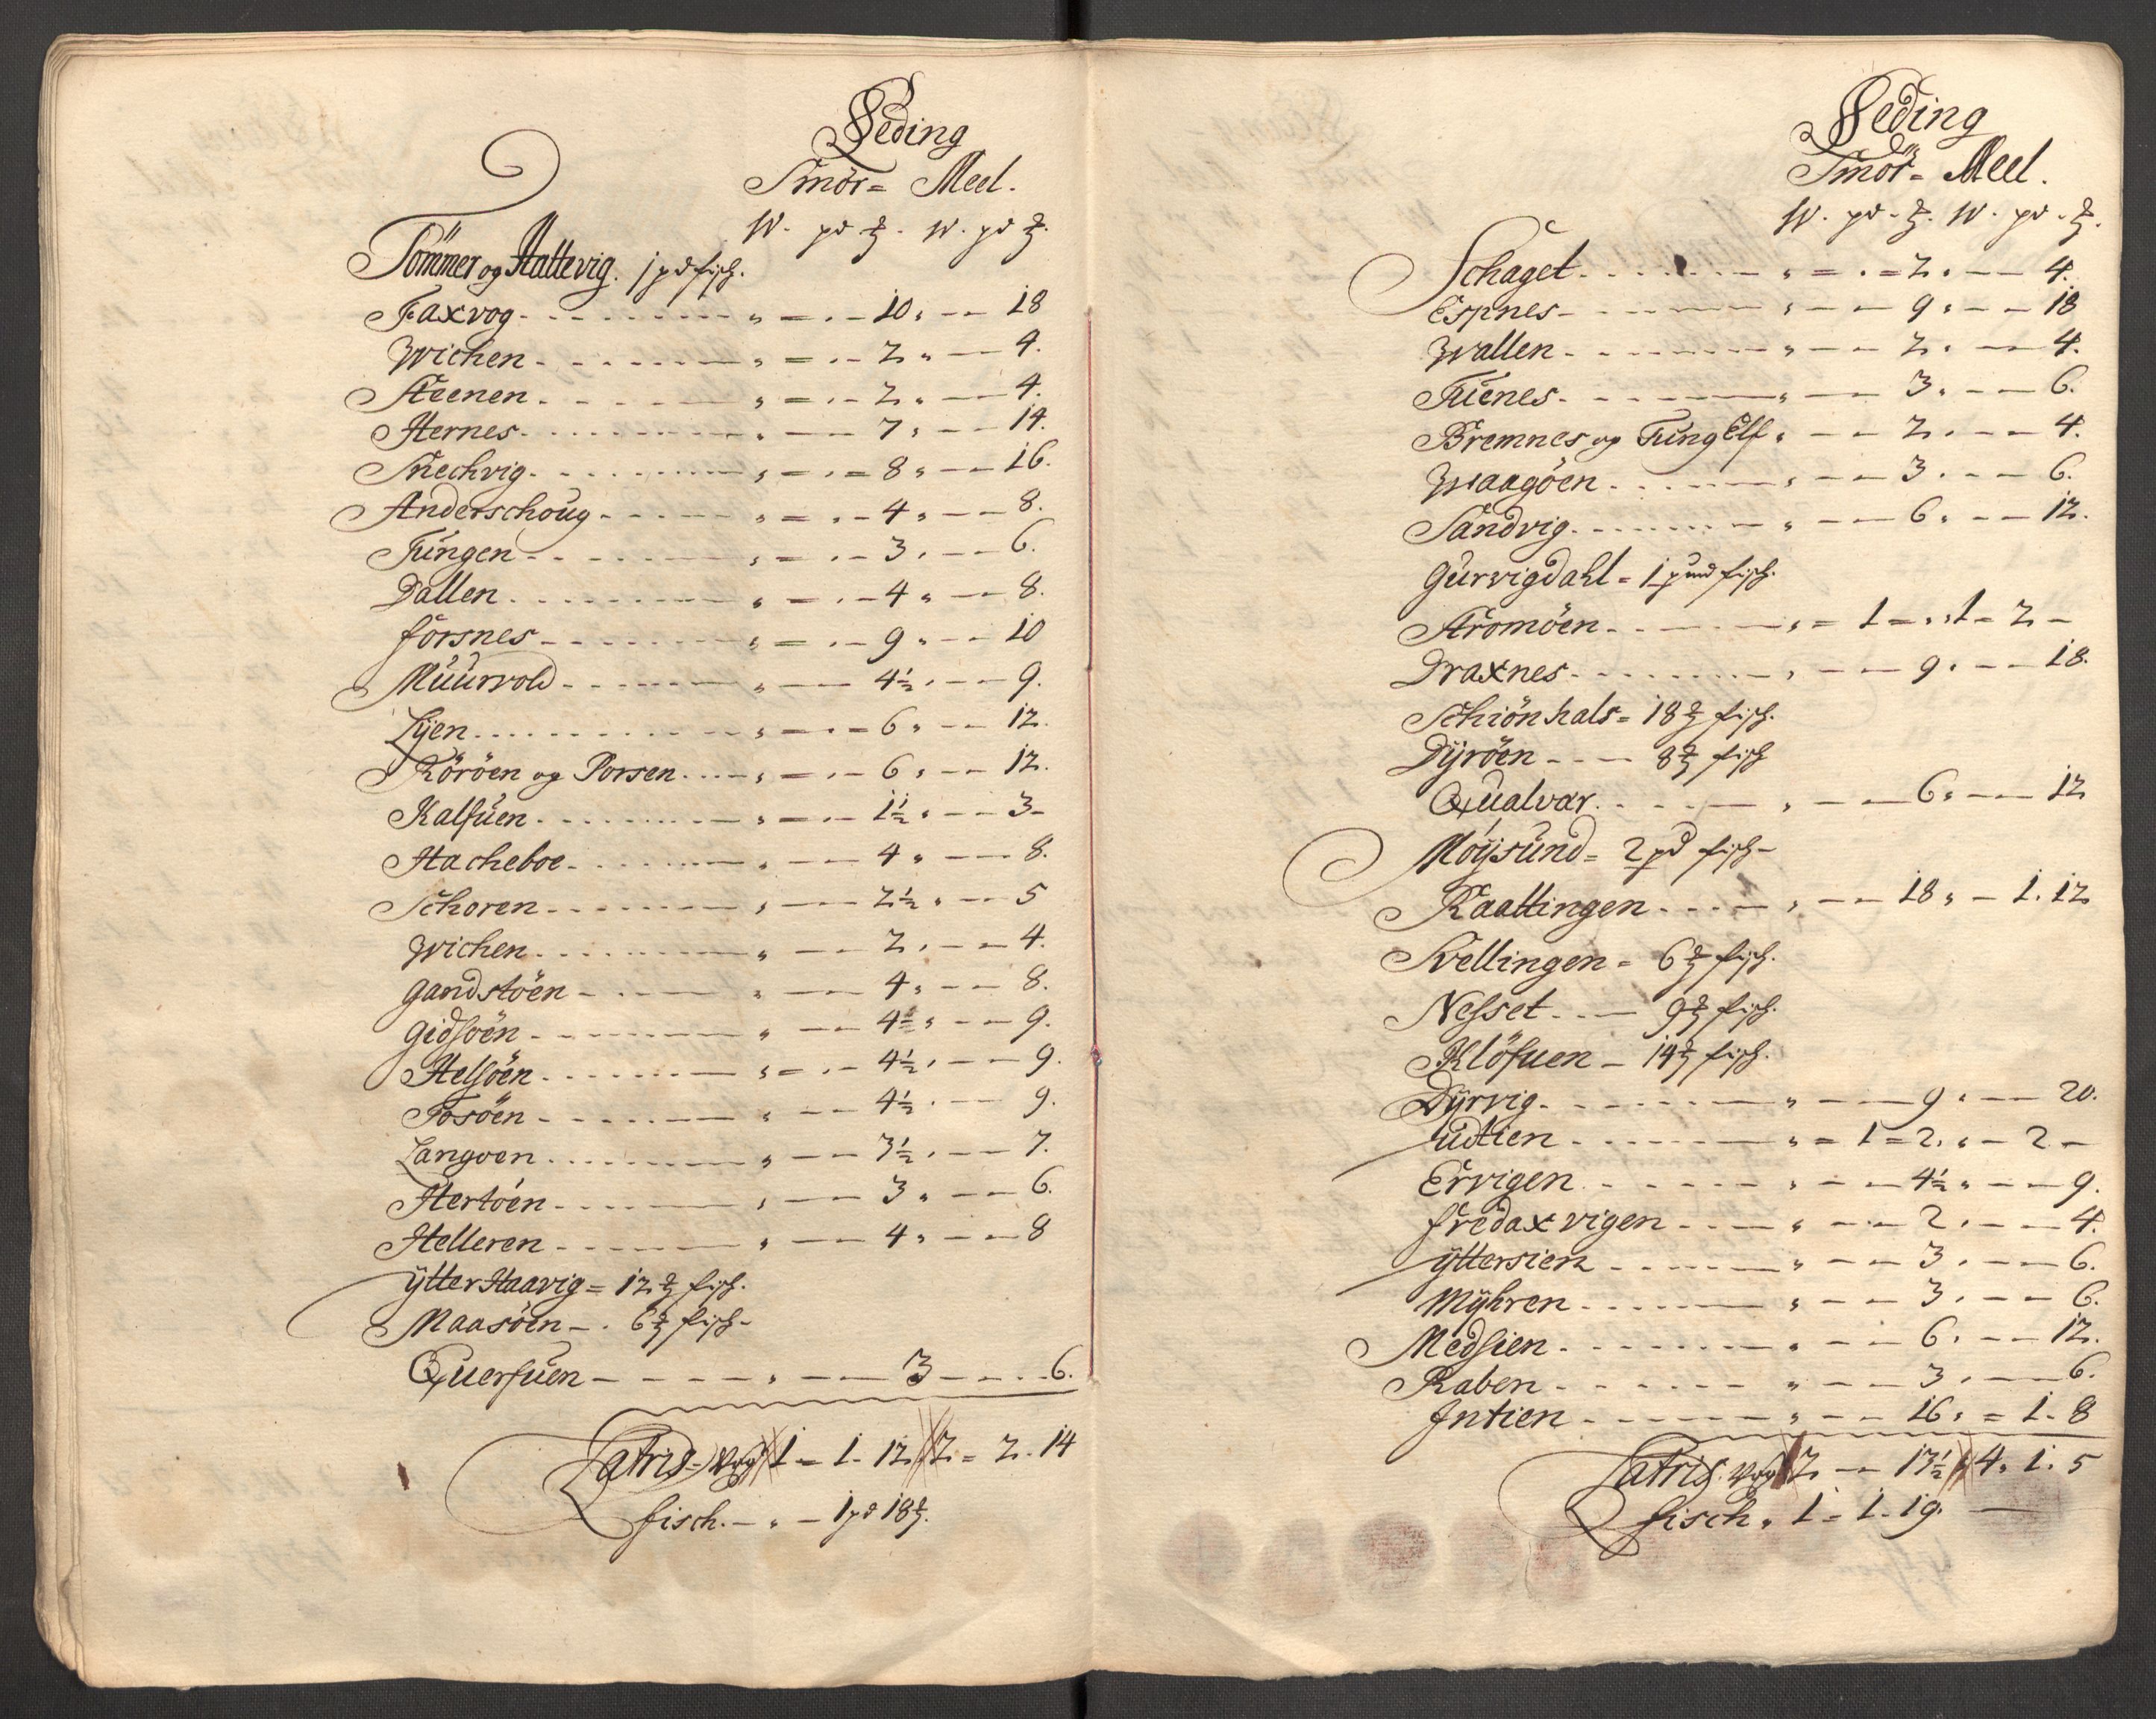 Leding
Smör= Meel.
W. pd. ℔. W. pd ℔.
Tömmer og Hattevig. 1 pd fisch.
Faxvog - - - „ = - - 10 „ - - 18
Wichen - - - „ = - - 2 „ - - 4.
Steenen - - - „ = - - 2 „ - - 4.
Hernes - - - „ - - 7 „ - - 14.
Snechvig - - - „ = - = 8 „ - - 16.
Anderschoug - - - „ = - - 4 „ - - 8.
Tungen - - - „ = - - 3 „ - - 6.
Dallen - - - „ = - - 4 „ - - 8.
forsnes - - - „ = - - 9 „ - - 10
Muurvold - - - „ - - 4½ „ - - 9.
Lyen - - - „ - - 6 „ - - 12.
Köröen og Porsen - - - „ = - - 6 „ - - 12.
Kalfuen - - - „ = - - 1½ „ - - 3 -
Hacheboe - - - „ - - 4 „ - - 8.
Schoren - - - „ - - 2½ „ - - 5
Wichen - - - „ - - 2 „ - - 4.
Gandstöen - - - „ - - 4 „ - - 8.
Gidsöen - - - „ - - 4½ „ - - 9.
Helsöen - - - „ = - - 4½ „ - - 9.
Tosöen - - - „ - - 4½ „ - - 9.
Langöen - - - „ - - 3½ „ - - 7.
Hertöen - - - „ - - 3 „ - - 6.
Helleren - - - „ - - 4 „ - - 8
ÿtter Haavig = 12 ℔ fisch.
Maasöen - . 6 ℔ fisch -
Querfuen - - - „ - - 3 - - - 6.
Latris = Wog 1 = 1 - 12 // 2 = 2 . 14
fisch. - „ - 1 pd 18 ℔.
Leding
Smör = Meel.
W. pd - ℔. W. pd - ℔.
Schaget - - - „ = . = 2 „ - - 4.
Espnes - - - „ - - 9 „ - - 18
Wallen - - - „ - - 2 „ - - 4.
Tuenes - - - „ - - 3 „ - - 6.
Bremnes og Tung Elf „ - - 2 „ - - 4.
Waagöen - - - „ - - 3 „ - - 6.
Sandvig - - - „ - - 6 „ - - 12.
Gurvigdahl = 1 pund fisch.
Stromöen - - - „ = 1 = „ „ 1 = 2 -
Draxnes - - - „ - - 9 „ - - 18.
Schiönhals = 18 ℔ fisch.
Dÿröen - - - 8 ℔ fisch
Qualvar - - - „ - - 6 „ - - 12
Möÿsund = 2 pd fisch -
Kaattingen - - - „ - - 18 „ - 1. 12
Svellingen = 6 ℔ fisch.
Nesset - - - 9 ℔ fisch.
Klöfuen - 14 ℔ fisch.
Dÿrvig - - - „ - - 9 „ - - 20.
udtien - - - „ = 1 = 2 „ „ - 2 -
Ervigen - - - „ - - 4½ „ - - 9.
fredaxvigen - - - „ - - 2 „ - - 4.
ÿttersien - - - „ - - 3 „ - - 6.
Mÿhren - - - „ - - 3 „ - - 6.
Medsien - - - „ - - 6 „ - - 12.
Raben - - - „ - - 3 „ - - 6.
Intien - - - „ - - 16 „ = 1 - 8
Latris Wog 2 - - 17½ // 4. 1. 5
fisch „ 1 = 1 - 19. -